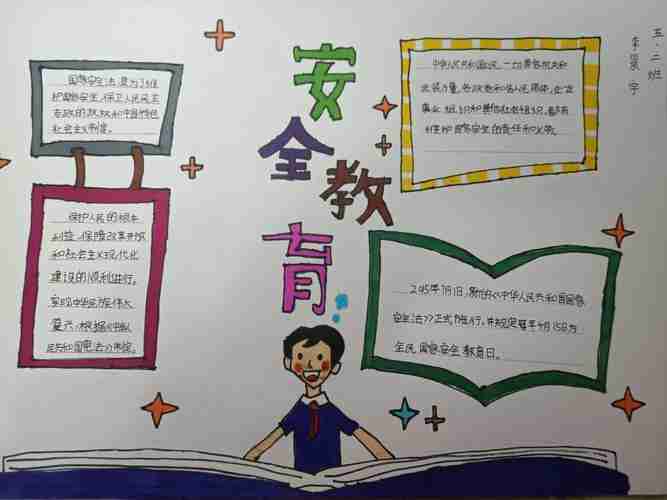 五.二班
李景宇
安全教育
国家安全法是为了维
护国家安全,保卫人民民主
专政的政权和中国特色
社会主义制度。
保护人民的根本
利益,保障改革开放
和社会主义现代化
建设的顺利进行。
实现中华民族伟大
复兴,根据《中华人
民共和国宪法》制定。
中华人民共和国公民、一切国家机关和
武装力量、各政党和各人民团体、企业
事业组织和其他社会组织,都有
维护国家安全的责任和义务。
2015年7月1日,新的《中华人民共和国国家
安全法》正式施行,并规定每年4月15日为
全民国家安全教育日。